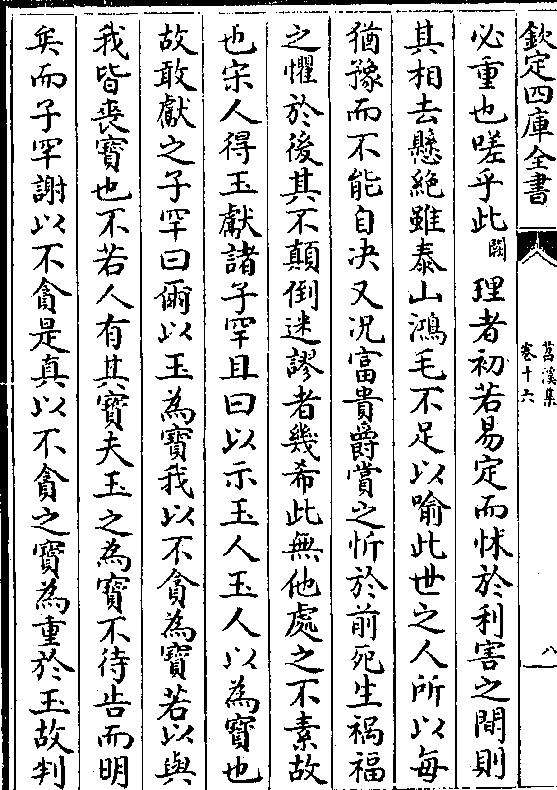 欽定四庫全書
苕溪集
卷十六
八
必重也嗟乎此闕理者初若易定而怵於利害之間則
其相去懸絶雖泰山鴻毛不足以喻此世之人所以每
猶豫而不能自決又況富貴爵賞之忻於前死生禍福
之懼於後其不顛倒迷謬者幾希此無他處之不素故
也宋人得玉獻諸子罕且曰以示玉人玉人以為寶也
故敢獻之子罕曰爾以玉為寶我以不貪為寶若以與
我皆喪寶也不若人有其寶夫玉之為寶不待告而明
矣而子罕謝以不貪是真以不貪之寶為重於玉故判